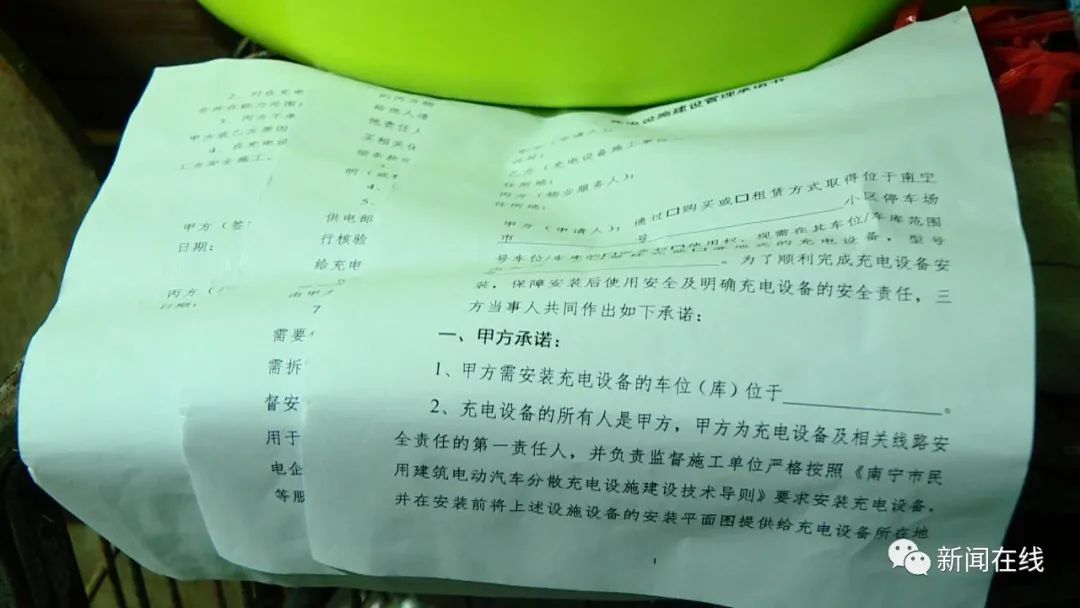 充电设施建设管理承诺书
甲方（申请人）：
住址：
乙方（充电设备施工单位
住所地：
丙方（物业服务人）：
住所地：
甲方（申请人）：通过口购买或口租赁方式取得位于南宁
市 号 小区停车场
号车位/车库的 使用权，现需在其车位/车库范围
的充电设备，型号
。为了顺利完成充电设备安
装，保障安装后使用安全及明确充电设备的安全责任，三
方当事人共同作出如下承诺：
一、甲方承诺：
1、甲方需安装充电设备的车位（库）位于 。
2、充电设备的所有人是甲方，甲方为充电设备及相关线路安
全责任的第一责任人，并负责监督施工单位严格按照《南宁市民
用建筑电动汽车分散充电设施建设技术导则》要求安装充电设备，
并在安装前将上述设施设备的安装平面图提供给充电设备所在地
1
的丙方物
给他人造
他责任人
买相关保
4、
5、
供电部
行核验
给充电
由甲方
7
需要
需拆
督安
用于
电企
等服
2、对在充电
3、丙方不承
甲方或乙方原因
4、在充电设
工存安全施工。
甲方（签
日期：
丙方（
日期：
新闻在线